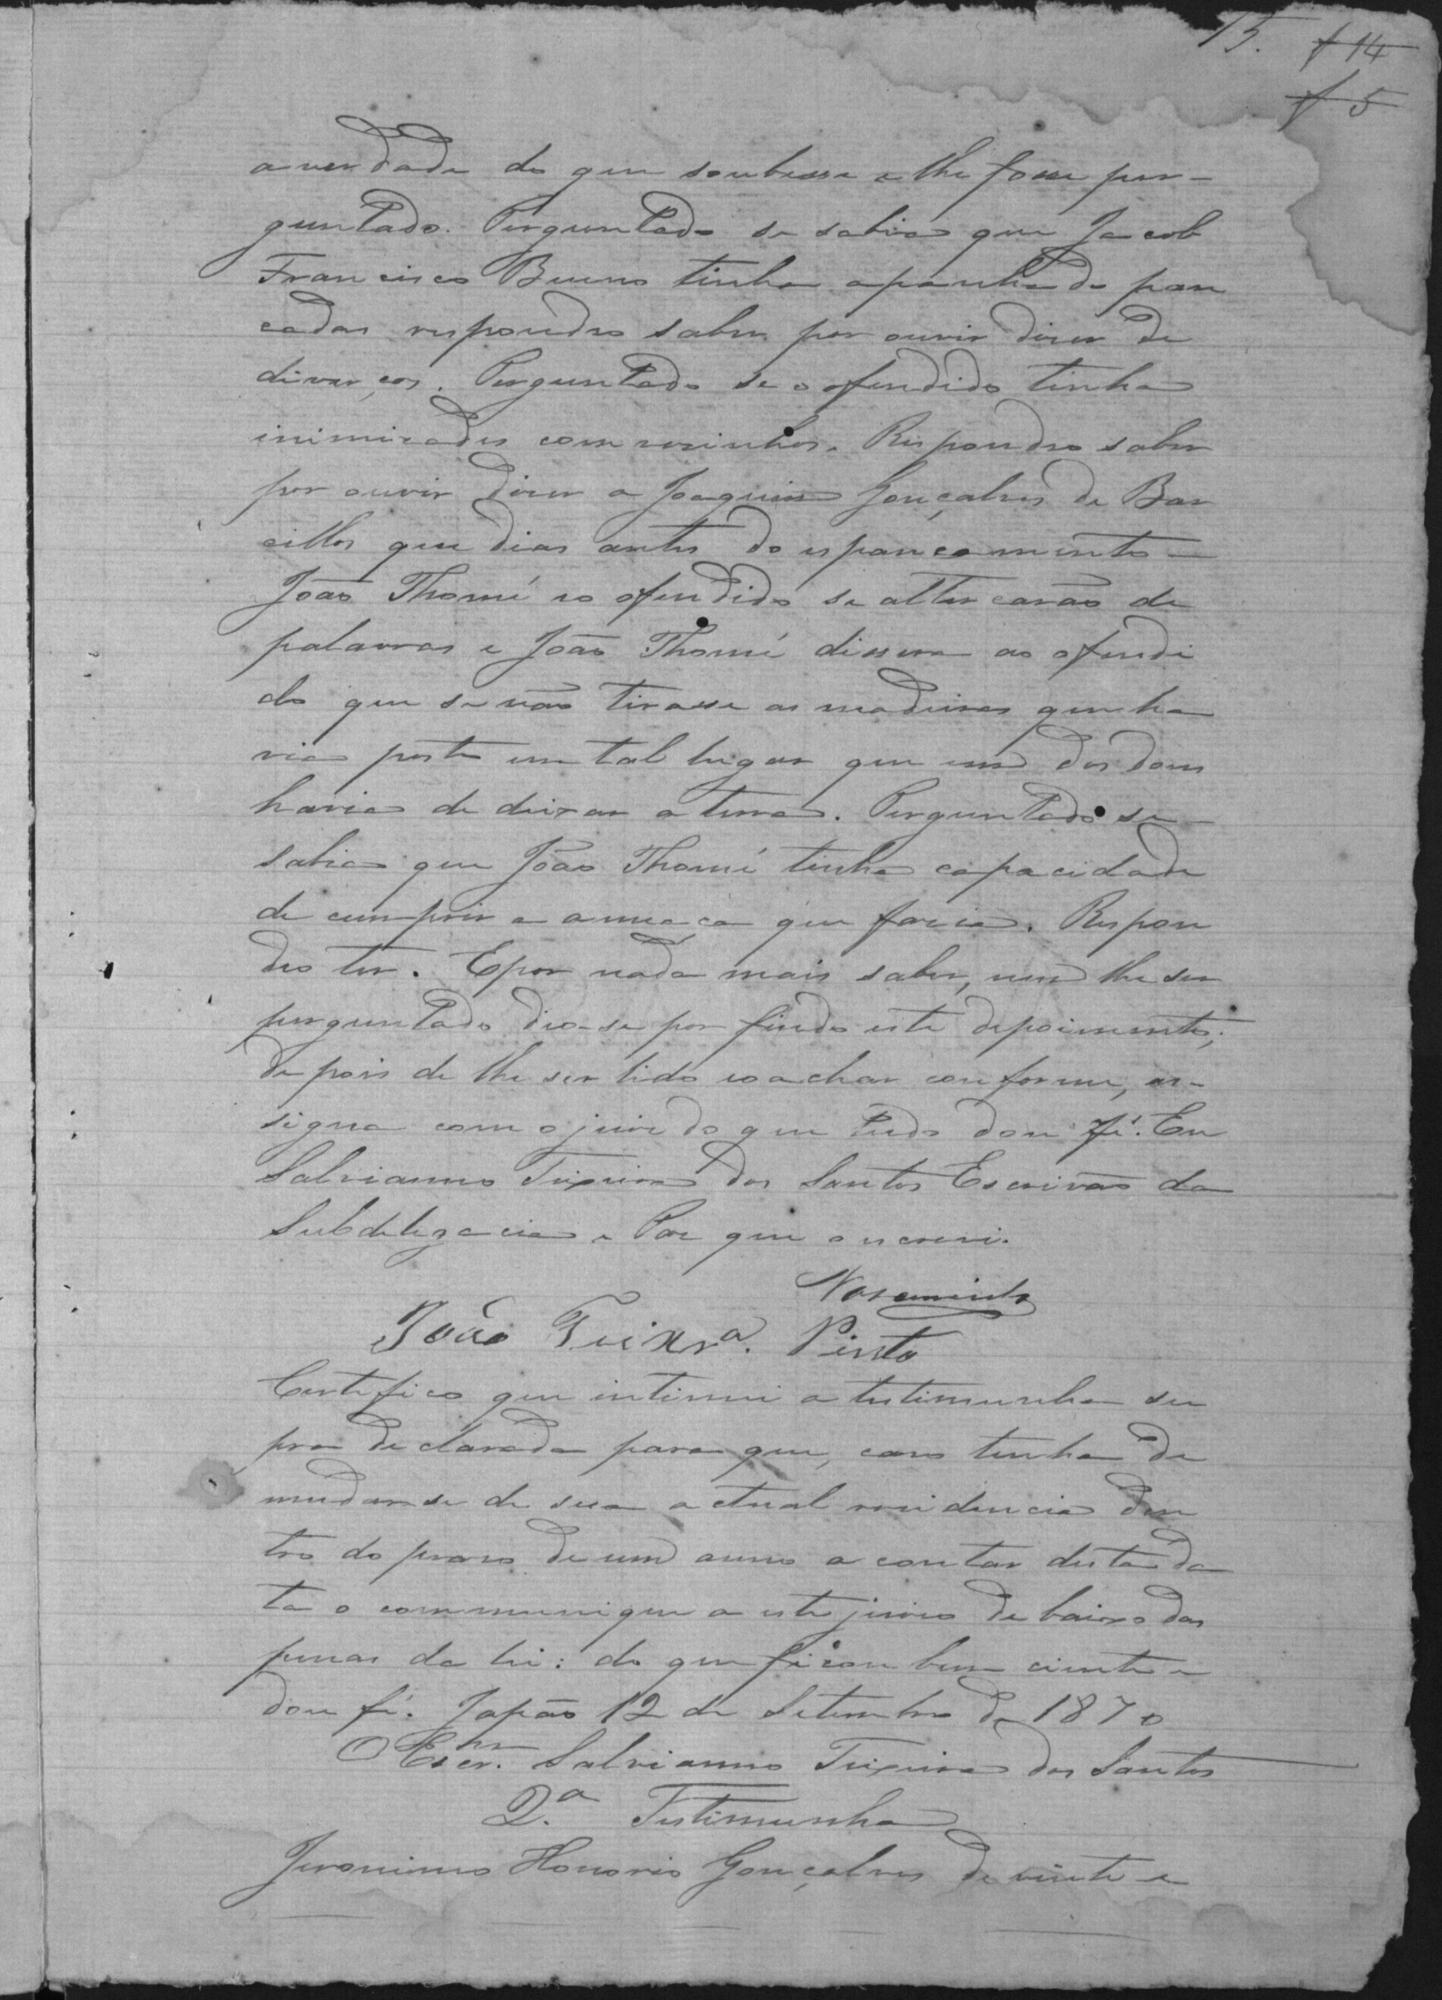 15. f 14
f 5
a verdade do que soubesse e lhe fosse per-
guntado. Perguntado se sabia que Jacob
Francisco Bueno tinha apanhado pan
cadas respondeo saber por ouvir diser de
diverços. Perguntado se o ofendido tinha
inimizades com vesinhos. Respondeo saber
por ouvir diser a Joaquim Gonçalves de Bar
cellos que dias antes do espancamento
João Thomé e o ofendido se alttercarão de
palavras e João Thomé dissera ao ofendi
do que se não tirasse as madeiras que ha
via posto em tal lugar que um dos dous
havia de deixar a terra. Perguntado se
sabia que João Thomé tinha capacidade
de cumprir a ameaça que fazia. Respon
deo ter. E por nada mais saber, nem lhe ser
perguntado deo-se por findo este depoimento;
depois de lhe ser lido e o achar conforme, as-
signa com o juiz do que tudo dou fé. Eu
Salvianno Teixeira dos Santos Escrivão da
Subdelegacia e Paz que o escrevi.
Nascimento
João Teixrª. Pinto
Certifico que intimei a testimunha su
pra declarada para que, caso tenha de
mudar-se de sua actual residencia den
tro do praso de um anno a contar desta da
ta o communique a este juizo debaixo das
penas da lei: do que ficou bem ciente e
dou fé. Japão 12 de Setembro de 1870
O Escr.ᵐ Salvianno Teixeira dos Santos
2.ª Testimunha
Jeronimo Honorio Gonçalves de vinte e